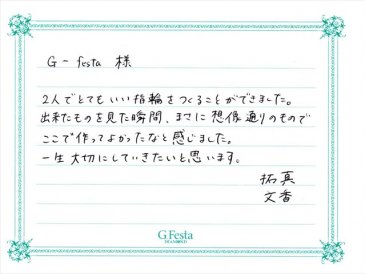 G-festa 様
2人でとてもいい指輪をつくることができました。
出来たものを見た瞬間、まさに想像通りのもので
ここで作ってよかったなと感じました。
一生大切にしていきたいと思います。
拓真
文香
G.Festa